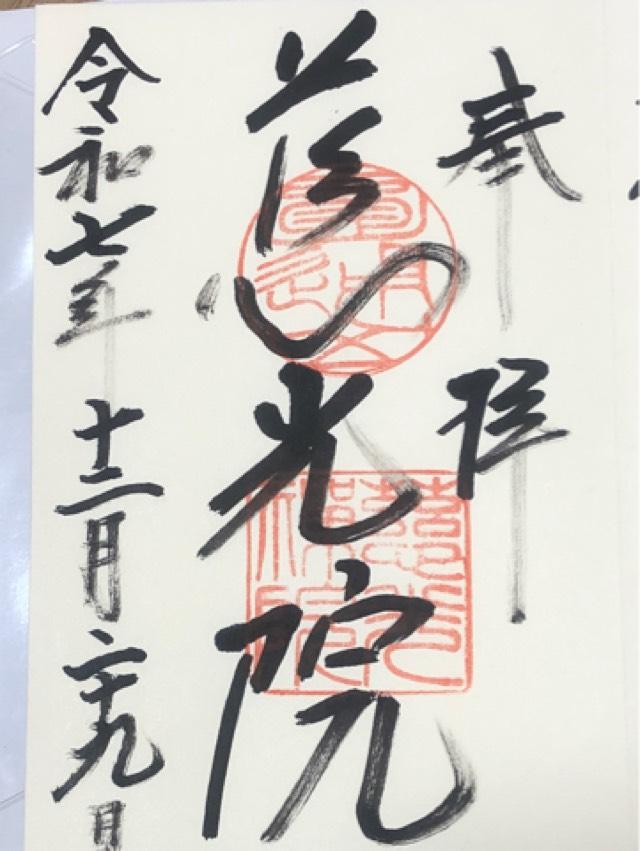 奉拝
慈光院
令和七年 十二月二十九日